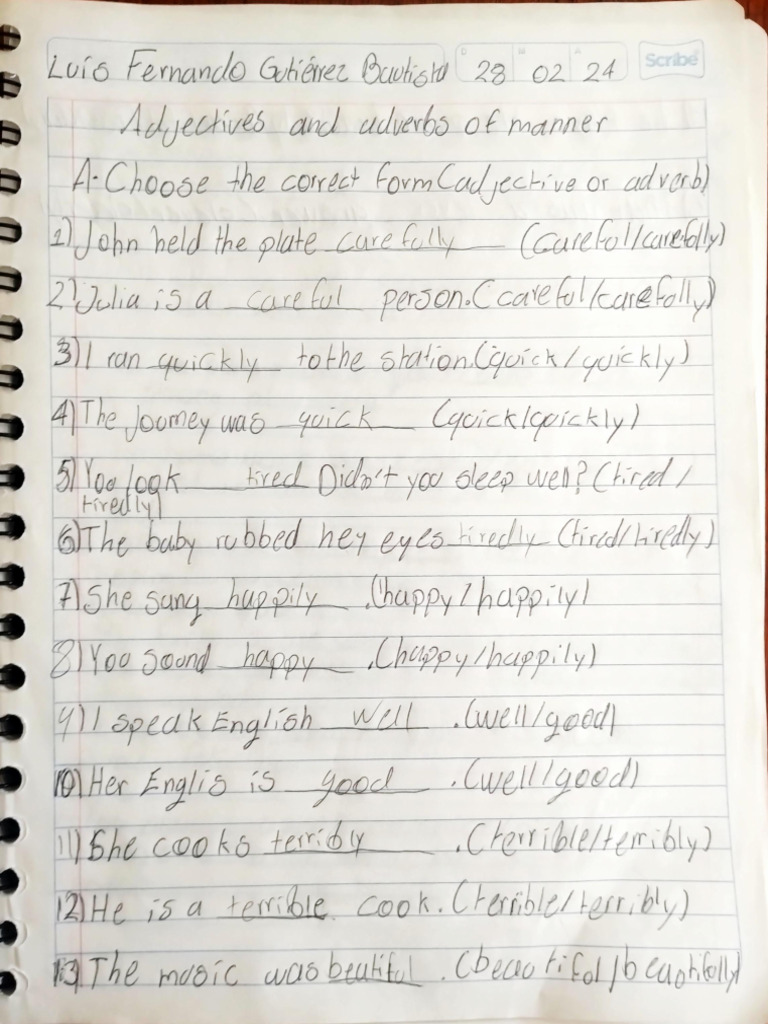 Luis Fernando Gutiérrez Bautista 28 02 24 Scribe
Adjectives and adverbs of manner
A. Choose the correct form (adjective or adverb)
1) John held the plate carefully (careful/carefully)
2) Julia is a careful person. (careful/carefully)
3) I ran quickly to the station. (quick/quickly)
4) The Journey was quick (quick/quickly)
5) You look tired Didn't you sleep well? (tired/
tiredly)
6) The baby rubbed hey eyes tiredly (tired/tiredly)
7) She sang happily. (happy/happily)
8) You sound happy. (happy/happily)
9) I speak English well. (well/good)
10) Her Englis is good. (well/good)
11) She cooks terribly. (terrible/terribly)
12) He is a terrible cook. (terrible/terribly)
13) The music was beutiful. (beautiful/beautifully)